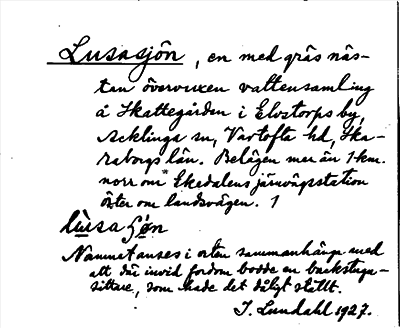 Lusasjön, en med gräs näs-
tan övervuxen vattensamling
å Skattegården i Elvstorps by,
Acklinga sn, Vartofta hd, Ska-
raborgs län. Belägen mer än 1 km.
norr om Ekedalens järnvägsstation
öster om landsvägen. 1
Namnet anses i orten sammanhänga med
att där invid fordom bodde en backstugu-
sittare, som hade det dåligt ställt.
J. Lundahl 1927.